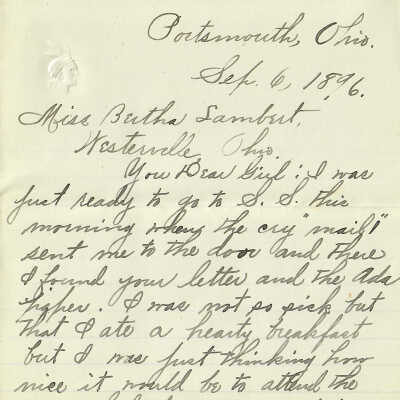 Portsmouth, Ohio.
Sep. 6, 1896.
Miss Bertha Lambert,
Westerville, Ohio.
You Dear Girl: I was
just ready to go to S. S. this
morning when the cry "mail!"
sent me to the door and there
I found your letter and the Ada
paper. I was not so sick but
that I ate a hearty breakfast
but I was just thinking how
nice it would be to attend the